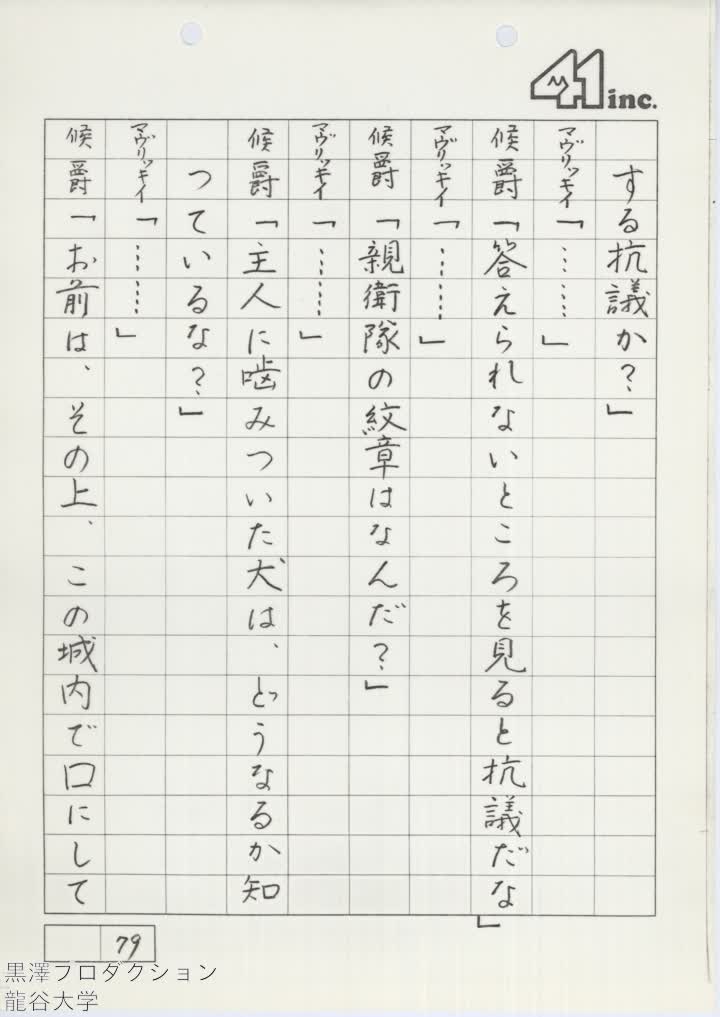 41 inc.
する抗議か?」
マヴリッキイ「……」
候爵「答えられないところを見ると抗議だな」
マヴリッキイ「……」
候爵「親衛隊の紋章はなんだ?」
マヴリッキイ「……」
候爵「主人に噛みついた犬は、どうなるか知
っているな?」
マヴリッキイ「……」
候爵「お前は、その上、この城内で口にして
79
黒澤プロダクション
龍谷大学